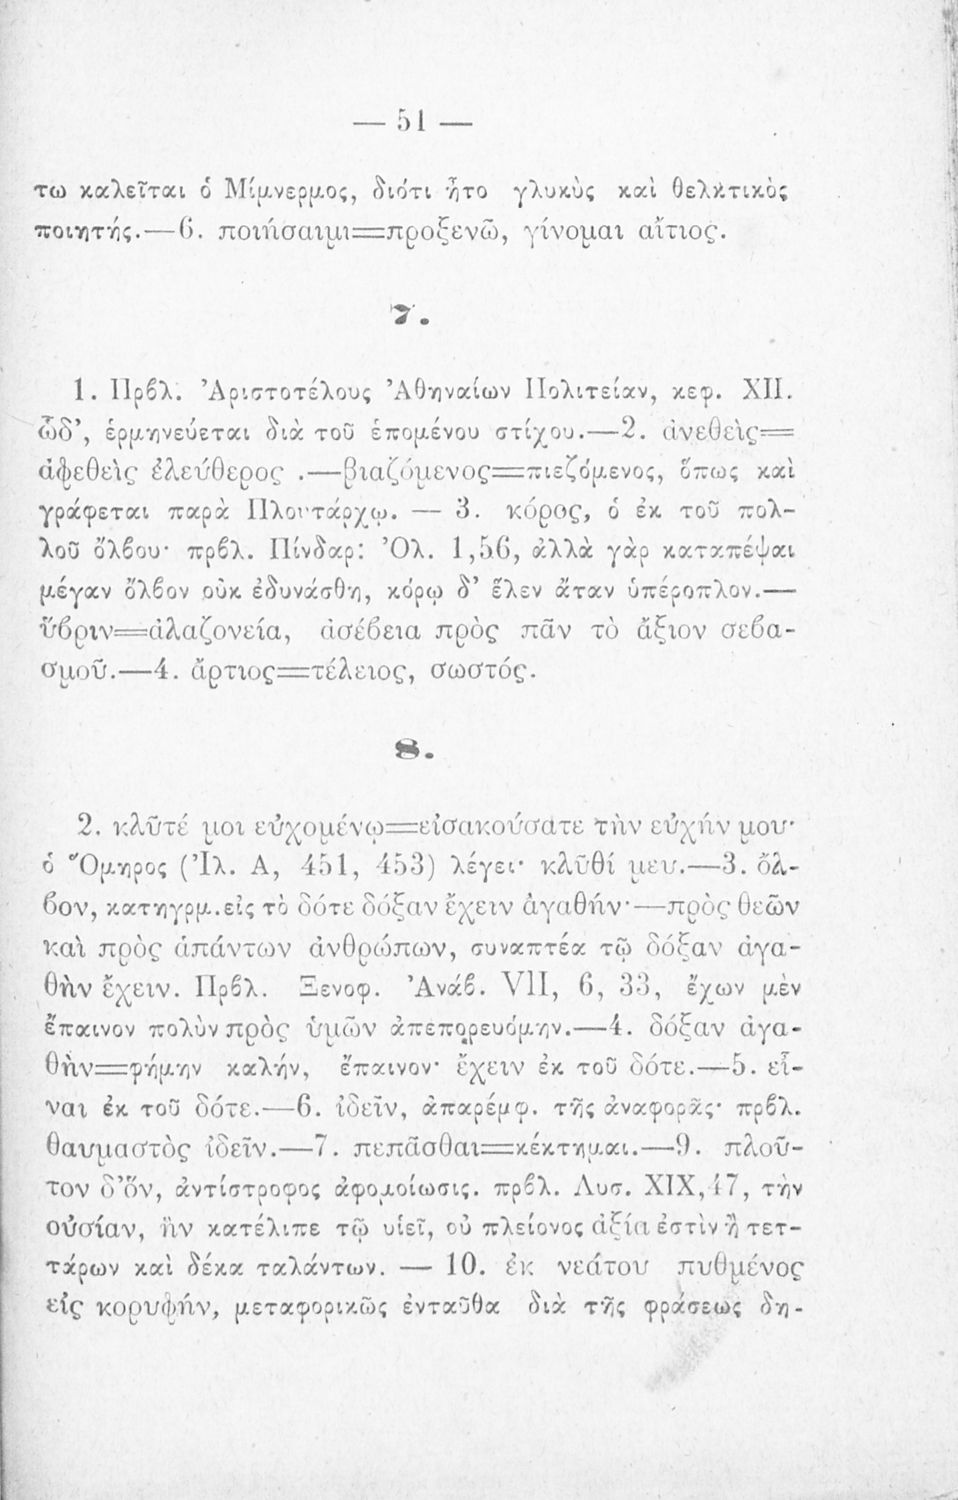 — 51 —
τω καλεῖται ὁ Μίμνερμος, διότι ἦτο γλυκὺς καὶ θελκτικὸς
ποιητής.—6. ποιήσαιμι=προξενῶ, γίνομαι αἴτιος.
7.
1. Πρβλ. Ἀριστοτέλους Ἀθηναίων Πολιτείαν, κεφ. XII.
ὧδ’, ἑρμηνεύεται διὰ τοῦ ἑπομένου στίχου.—2. ἀνεθεὶς=
ἀφεθεὶς ἐλεύθερος .—βιαζόμενος=πιεζόμενος, ὅπως καὶ
γράφεται παρὰ Πλουτάρχῳ. — 3. κόρος, ὁ ἐκ τοῦ πολ-
λοῦ ὄλβου· πρβλ. Πίνδαρ: Ὀλ. 1,56, ἀλλὰ γὰρ καταπέψαι
μέγαν ὄλβον οὐκ ἐδυνάσθη, κόρῳ δ’ ἕλεν ἄταν ὑπέροπλον.—
ὕβριν=ἀλαζονεία, ἀσέβεια πρὸς πᾶν τὸ ἄξιον σεβα-
σμοῦ.—4. ἄρτιος=τέλειος, σωστός.
8.
2. κλῦτέ μοι εὐχομένῳ=εἰσακούσατε τὴν εὐχήν μου·
ὁ Ὅμηρος (Ἰλ. Α, 451, 453) λέγει· κλῦθί μευ.—3. ὄλ-
βον, κατηγρμ. εἰς τὸ δότε δόξαν ἔχειν ἀγαθήν·—πρὸς θεῶν
καὶ πρὸς ἁπάντων ἀνθρώπων, συναπτέα τῷ δόξαν ἀγα-
θὴν ἔχειν. Πρβλ. Ξενοφ. Ἀνάβ. VII, 6, 33, ἔχων μὲν
ἔπαινον πολὺν πρὸς ὑμῶν ἀπεπορευόμην.—4. δόξαν ἀγα-
θὴν=φήμην καλήν, ἔπαινον· ἔχειν ἐκ τοῦ δότε.—5. εἶ-
ναι ἐκ τοῦ δότε.—6. ἰδεῖν, ἀπαρέμφ. τῆς ἀναφορᾶς· πρβλ.
θαυμαστὸς ἰδεῖν.—7. πεπᾶσθαι=κέκτημαι.—9. πλοῦ-
τον δ’ὅν, ἀντίστροφος ἀφομοίωσις. πρβλ. Λυσ. XIX, 47, τὴν
οὐσίαν, ἣν κατέλιπε τῷ υἱεῖ, οὐ πλείονος ἀξία ἐστὶν ἢ τετ-
τάρων καὶ δέκα ταλάντων. — 10. ἐκ νεάτου πυθμένος
εἰς κορυφήν, μεταφορικῶς ἐνταῦθα διὰ τῆς φράσεως δη-